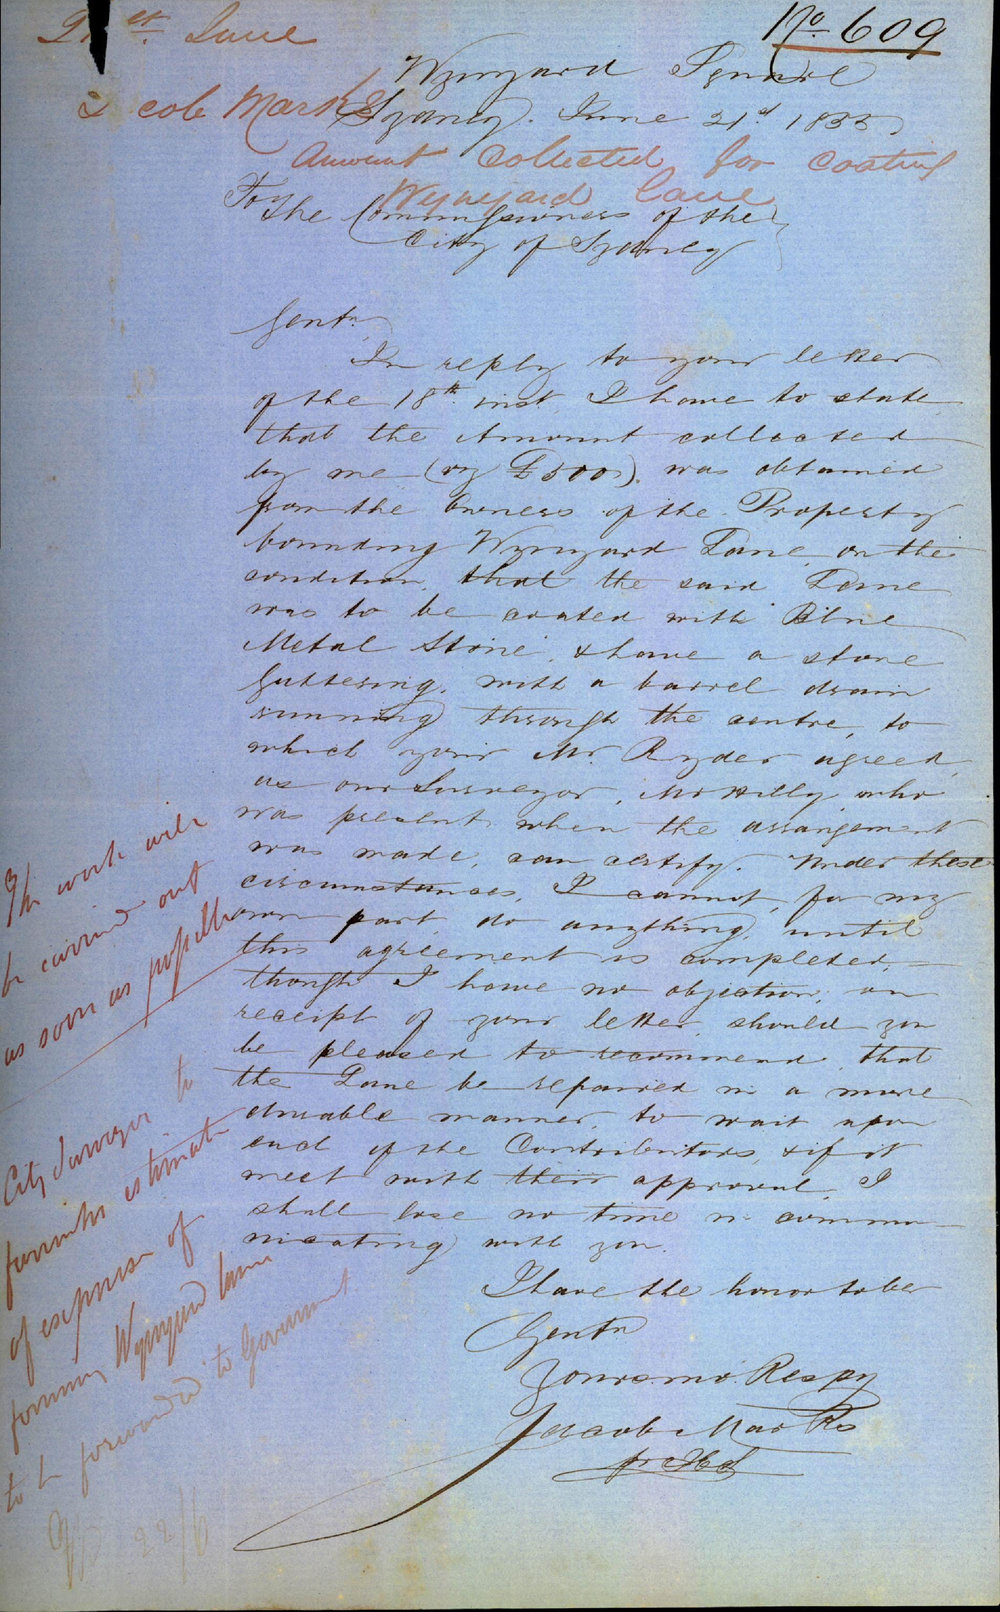 21st June
No 609
Wynyard Square
Jacob Marks
Sydney. June 21st 1855
Amount collected for coating
Wynyard Lane
To The Commissioners of the
City of Sydney
Gentn
In reply to your letter
of the 18th inst. I have to state
that the Amount collected
by me (vz £500). was obtained
from the Owners of the Property
bounding Wynyard Lane, on the
condition, that the said Lane
was to be coated with Blue
Metal Stone, & have a stone
Guttering, with a barrel drain
running through the centre, to
which your Mr. Ryder agreed,
as our Surveyor, Mr Hilly, who
was present when the arrangement
was made, can certify. Under these
circumstances, I cannot, for my
own part, do anything, until
this agreement is completed, —
though I have no objection, on
receipt of your letter, should you
be pleased to recommend, that
the Lane be repaired in a more
durable manner, to wait upon
each of the Contributors, & if it
meet with their approval, I
shall lose no time in commu-
nicating with you.
I have the honor to be
Gentn
Yours mo. Respy
Jacob Marks
The work will
be carried out
as soon as possible
City Surveyor to
furnish estimate
of expense of
forming Wynyard Lane
to be forwarded to Government
22/6